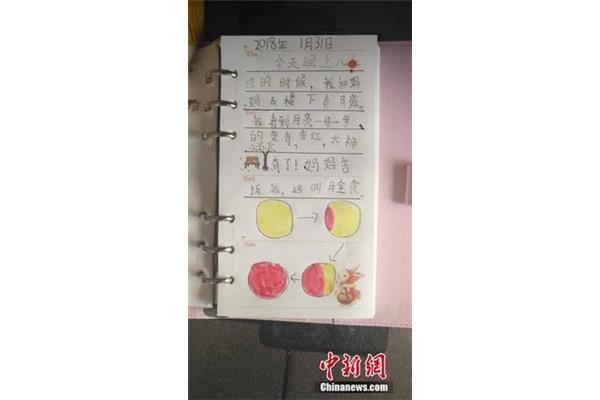 2018年 1月31日
今天晚上八
点的时候，我和妈
妈去楼下看月亮。
我看到月亮一步一步
的变弯变红，太神
奇了！妈妈告
诉我，这叫月全食
中新网
Chinanews.com